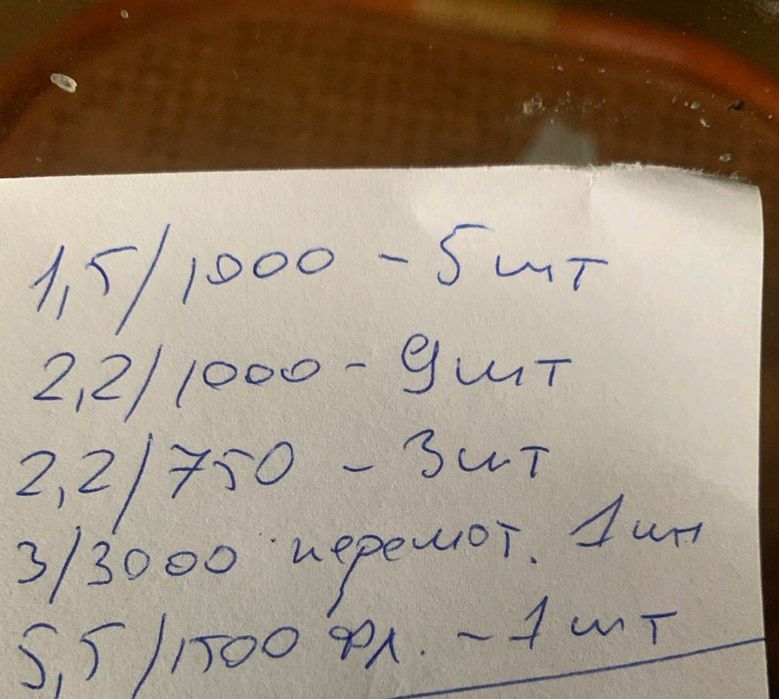 1,5/1000 - 5 шт
2,2/1000 - 9 шт
2,2/750 - 3 шт
3/3000 перемот. 1 шт
5,5/1500 фл. - 1 шт